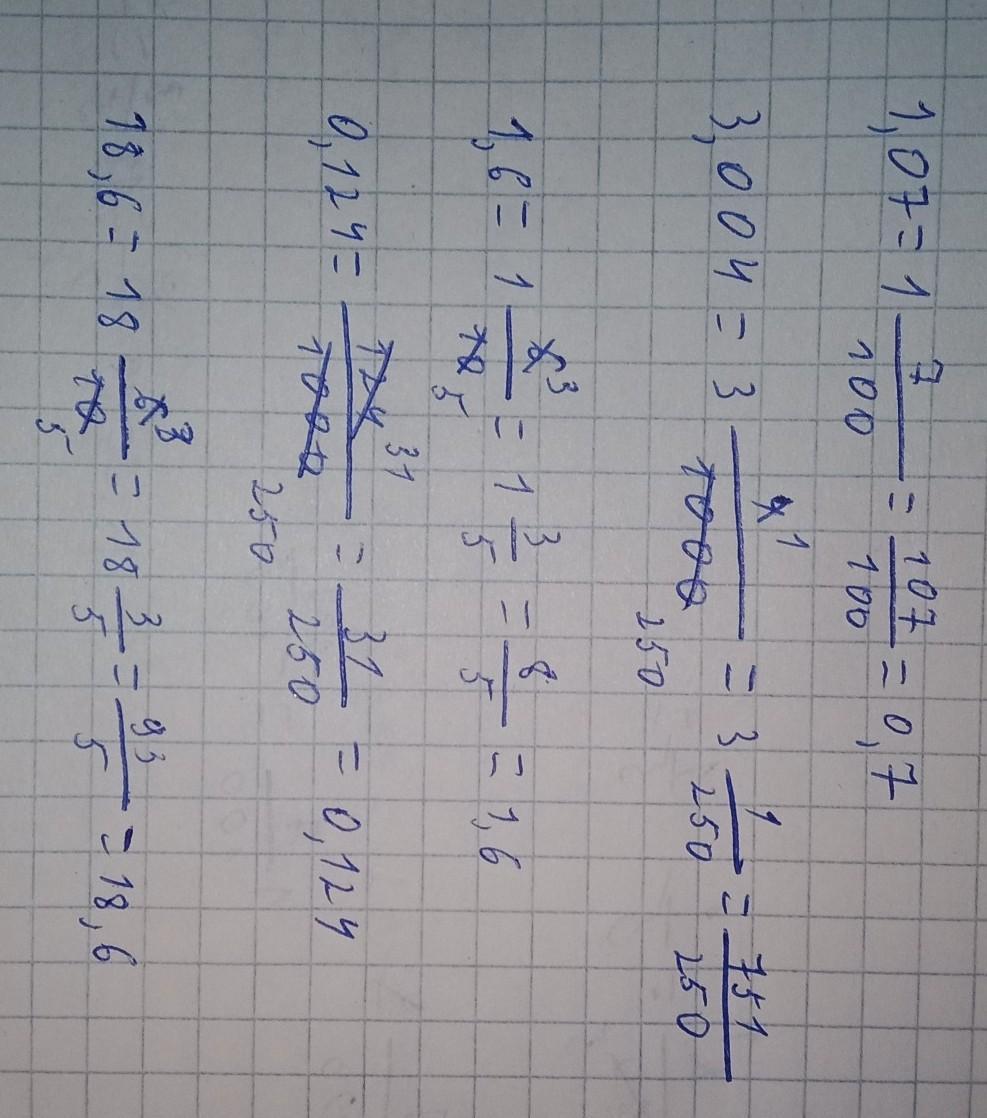 1,07 = 1 7/100 = 107/100 = 0,7
3,004 = 3 4 1/1000 250 = 3 1/250 = 751/250
1,6 = 1 6 3/10 5 = 1 3/5 = 8/5 = 1,6
0,124 = 124 31/1000 250 = 31/250 = 0,124
18,6 = 18 6 3/10 5 = 18 3/5 = 93/5 = 18,6